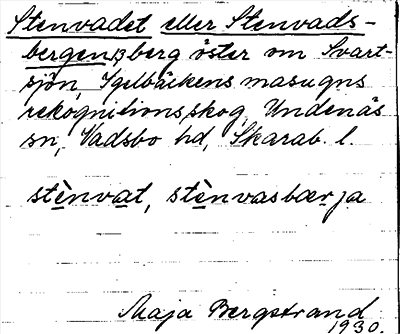 Stenvadet eller Stenvads-
bergen, berg öster om Svart-
sjön, Igelbäckens masugns
rekognitionsskog, Undenäs
sn, Vadsbo hd, Skarab. l.
stènvat, stènvasbærja
Maja Bergstrand
1930.